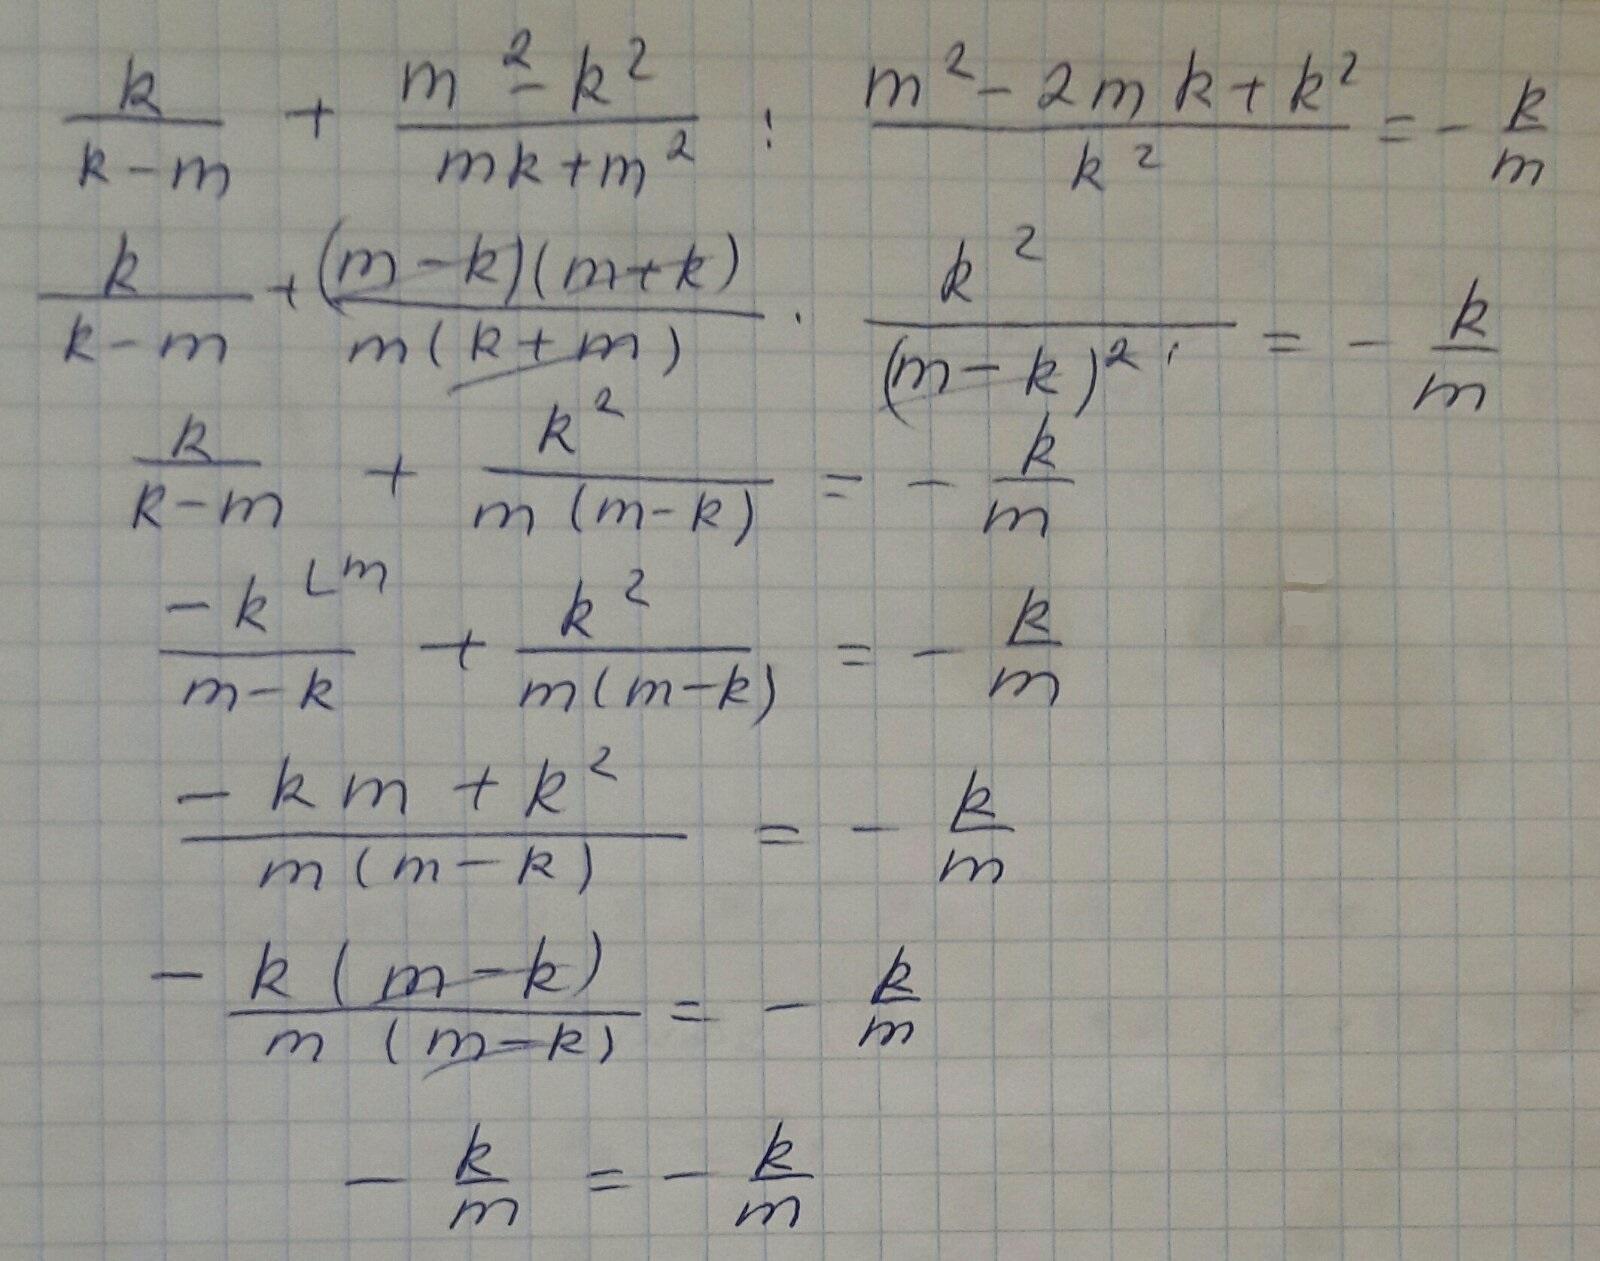 k/(k-m) + (m²-k²)/(mk+m²) : (m²-2mk+k²)/k² = - k/m
k/(k-m) + (m-k)(m+k)/(m(k+m)) · k²/(m-k)² = - k/m
k/(k-m) + k²/(m(m-k)) = - k/m
-k ⌊m/(m-k) + k²/(m(m-k)) = - k/m
(-km+k²)/(m(m-k)) = - k/m
- k(m-k)/(m(m-k)) = - k/m
- k/m = - k/m